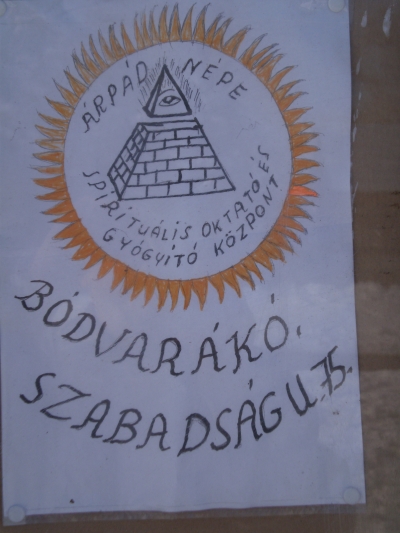 ÁRPÁD NÉPE
SPIRITUÁLIS OKTATÓ ÉS
GYÓGYITÓ KÖZPONT
BÓDVARÁKÓ.
SZABADSÁG U. 75.